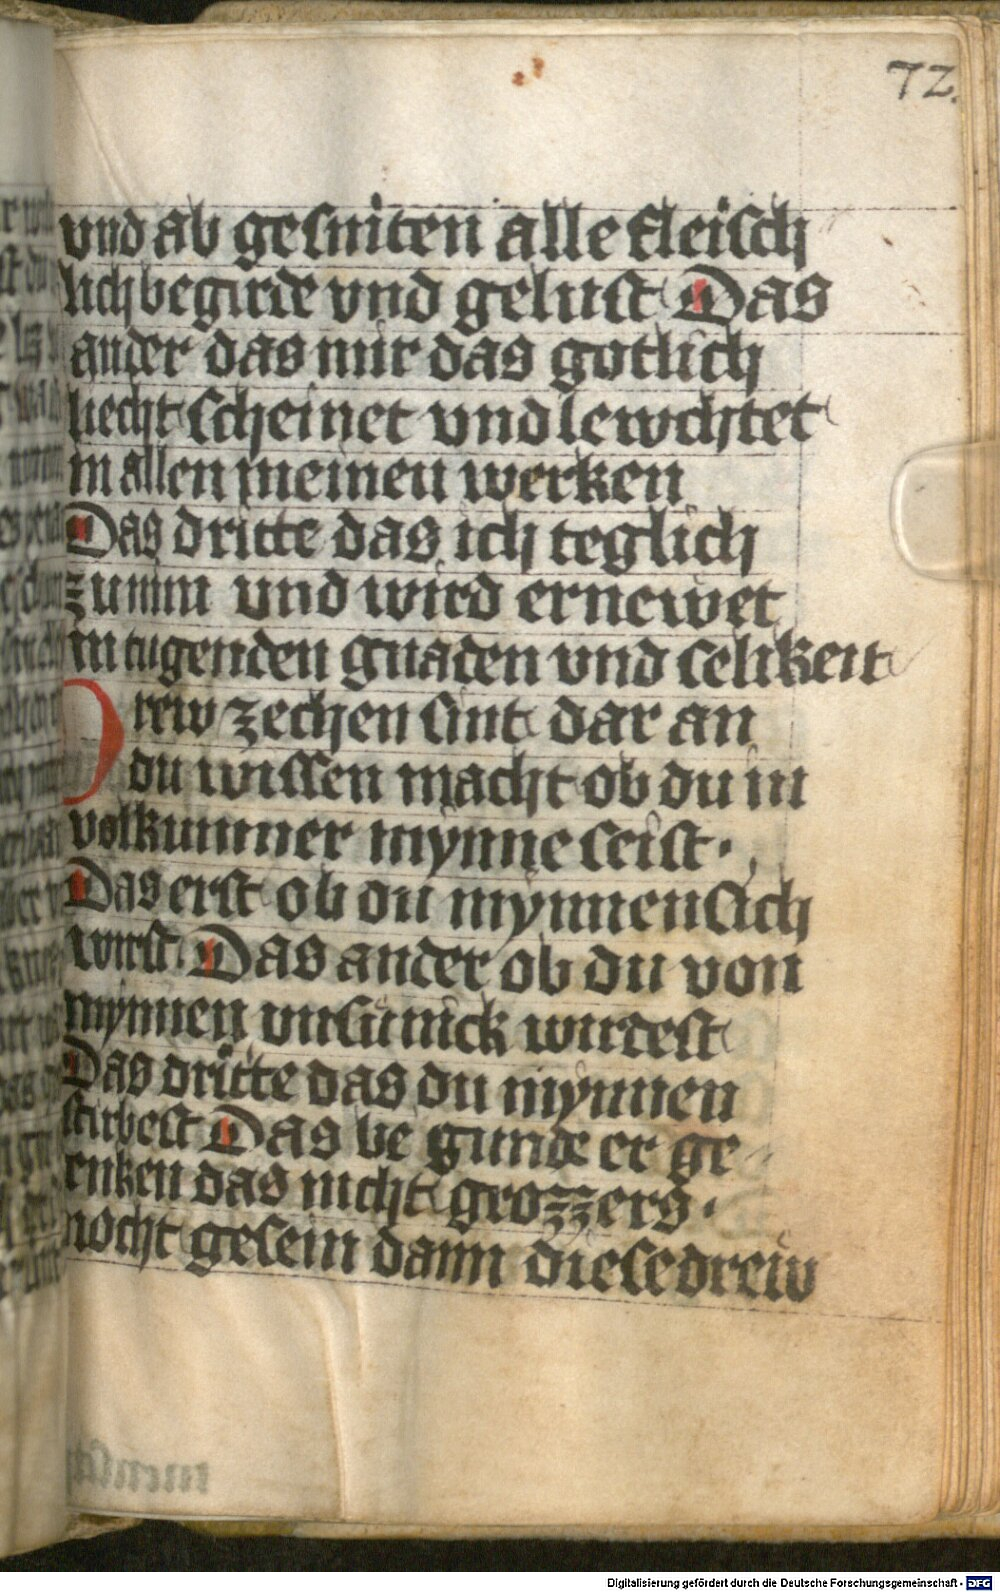 72.
vnd ab gesniten alle fleisch
lich begirde vnd gelust Das
ander das mir das gotlich
liecht scheinet vnd lewchtet
in allen meinen werken
Das dritte das ich teglich
zu nim vnd wird ernewet
in tugenden gnaden vnd selikeit
Drew zechen sint dar an
du wissen macht ob du in
volkumner mynne seist.
Das erst ob du mynnensich
wirst. Das ander ob du von
mynnen vnsinnick wirdest
Das dritte das du mynnen
stirbest Das be gunde er ge
enken das nicht grozzers.
mocht gesein dann diese drew
Digitalisierung gefördert durch die Deutsche Forschungsgemeinschaft - DFG